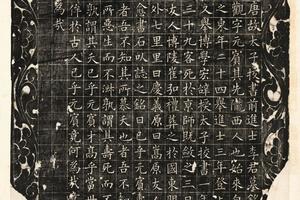 唐故太子校書前進士李君墓銘
觀字元賓其先隴西人也始來自
之東年二十四舉進士三年登
又舉博學宏辭授太子校書一年
二十九客死於京師既斂之三日
友人博陵崔和禮葬之於國東
外七里曰慶義原曰嵩原友人
愈書石以誌之銘曰已乎元賓
者吾不知其所慕夭也者吾不知
所惡生而不淑孰謂其壽死而不
孰謂其夭已乎元賓才高乎當世
侔於古人已乎元賓竟何為哉
為哉